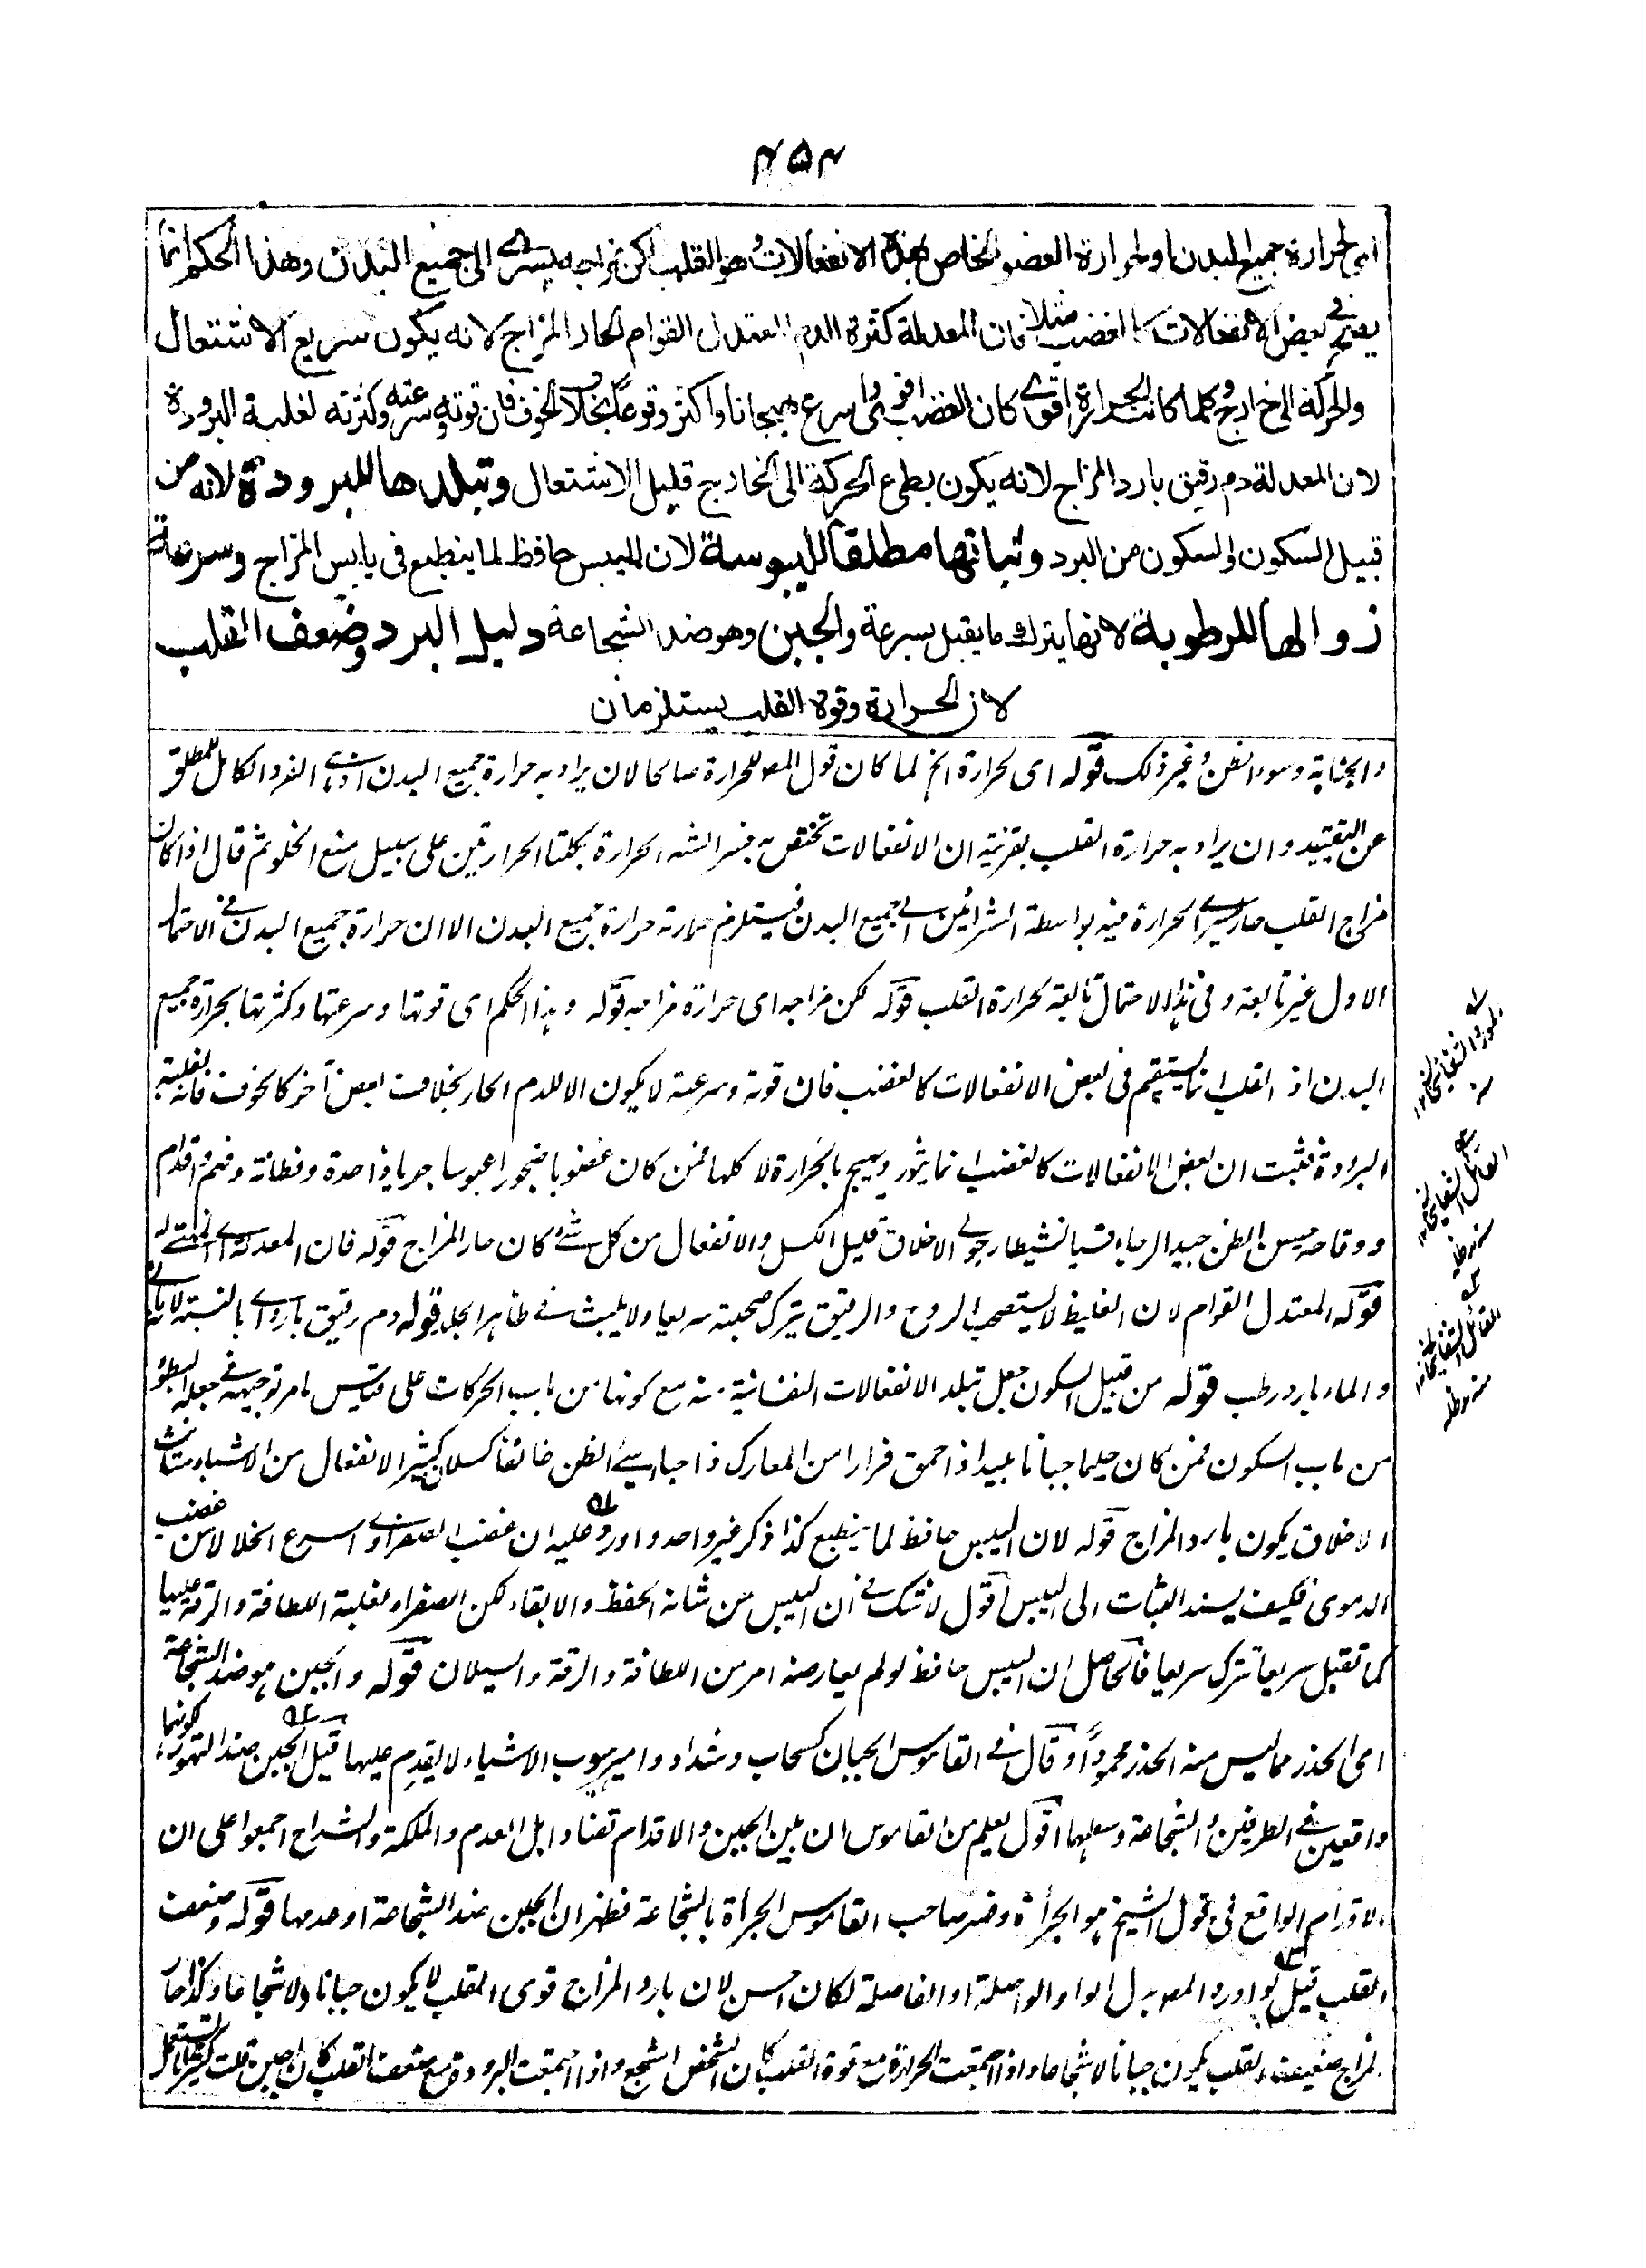 ۴۵۴
اى لحرارة جميع البدن او لحرارة العضو الخاص بهذه الانفعالات وهو القلب لكن مزاجه يسرى الى جميع البدن وهذا الحكم انما
يصح فى بعض الانفعالات كالغضب مثلا فان المعد له كثرة الدم المعتدل القوام الحار المزاج لانه يكون سريع الاشتعال
والحركة الى خارج وكلما كانت الحرارة اقوى كان الغضب اقوى واسرع هيجانا واكثر وقوعا بخلاف الخوف فان قوته وسرعته وكثرته لغلبة البرودة
لان المعد له دم رقيق بارد المزاج لانه يكون بطئ الحركة الى الخارج قليل الاشتعال وتبلدها للبرودة لانه من
قبيل السكون والسكون من البرد وثباتها مطلقا لليبوسة لان اليبس حافظ لما ينطبع فى يابس المزاج وسرعة
زوالها للرطوبة لانها يترك ما يقبل بسرعة والجبن وهو ضد الشجاعة دليل البرد وضعف القلب
لان الحرارة وقوة القلب يستلزمان
والجناية وسوء الظن وغير ذلك قوله اى لحرارة الخ لما كان قول المصـ للحرارة صالحا لان يراد به حرارة جميع البدن اذ هى الفرد الكامل للمطلق
عن التقييد وان يراد به حرارة القلب بقرينة ان الانفعالات تختص به فسر الشـ الحرارة بكلتا الحرارتين على سبيل منع الخلو ثم قال اذا كان
مزاج القلب حارا يسرى الحرارة فيه بواسطة الشرائين الى جميع البدن فيستلزم حرارته حرارة جميع البدن الا ان حرارة جميع البدن فى الاحتمال
الاول غير تابعة وفى هذا الاحتمال تابعة لحرارة القلب قوله لكن مزاجه اى حرارة مزاجه قوله وهذا الحكم اى قوتها وسرعتها وكثرتها بحرارة جميع
البدن او القلب انما يستقيم فى بعض الانفعالات كالغضب فان قوته وسرعته لا يكون الا للدم الحار بخلاف بعض آخر كالخوف فانه بغلبة
البرودة فثبت ان بعض الانفعالات كالغضب انما يثور ويهيج بالحرارة لا كلها فمن كان غضوبا ضجورا عبوسا جريا ذا حدة وفطانة وفهم واقدام
ووقاحة حسن الظن جيد الرجاء قسيا نشيطا رجولى الاخلاق قليل الكسل والانفعال من كل شئ كان حار المزاج قوله فان المعد له اى المهيئ له
قوله المعتدل القوام لان الغليظ لا يستصحب الروح والرقيق يترك صحبته سريعا ولا يلبث فى ظاهر الجلد قوله دم رقيق بارد اى بالنسبة
والماء بارد رطب قوله من قبيل السكون جعل تبلد الانفعالات النفسانية منه مع كونها من باب الحركات على قياس ما مر توجيهه فى جعله البطؤ
من باب السكون فمن كان حليما جبانا بليدا ذا حمق فرارا من المعارك ذا حياء سيئ الظن خائفا كسلان كثير الانفعال من الاشياء
الاخلاق يكون بارد المزاج قوله لان اليبس حافظ لما ينطبع كذا ذكر غير واحد واورد عليه ان غضب الصفراوى اسرع انحلالا من غضب
الدموى فكيف يسند الثبات الى اليبس اقول لا شك فى ان اليبس من شانه الحفظ والابقاء لكن الصفراء لغلبة اللطافة والرقة عليها
كما تقبل سريعا تترك سريعا فالحاصل ان اليبس حافظ لو لم يعارضه امر من اللطافة والرقة والسيلان قوله والجبن هو ضد الشجاعة
اى الحذر مما ليس منه الحذر محمودا وقال فى القاموس الجبان كسحاب وشداد وامير هيوب الاشياء لا يقدم عليها قيل الجبن ضد التهور لكونهما
واقعين فى الطرفين والشجاعة وسطهما اقول يعلم من القاموس ان بين الجبن والاقدام تضاد ابل العدم والملكة والشراح اجمعوا على ان
الاقدام الواقع فى قول الشيخ هو الجرأة وفسر صاحب القاموس الجرأة بالشجاعة فظهر ان الجبن ضد الشجاعة او عدمها قوله وضعف
القلب قيل لو اورد المصـ بدل الواو الواصلة او الفاصلة لكان احسن لان بارد المزاج قوى القلب لا يكون جبانا ولا شجاعا وكذا حار
المزاج ضعيف القلب يكون جبانا لا شجاعا واذا اجتمعت الحرارة مع قوة القلب كان الشخص اشجع واذا اجتمعت البرودة مع ضعف القلب كان اجبن قلت